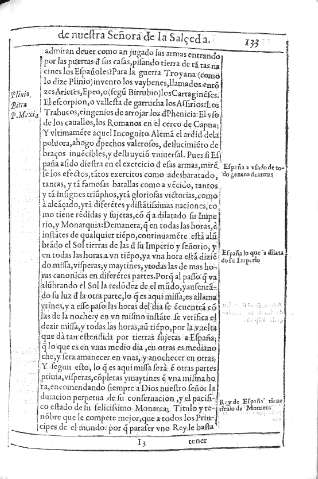 de nuestra Señora de la Salçeda. 133
admiran de ver como an jugado sus armas entrando
por las puertas d sus casas, pisando tierra de tã tas na
ciones los Españoles: Para la guerra Troyana (como
lo dize Plinio) invento los vaybenes, llamados entõ
zes Arietes, Epeo, o (segũ Bitrubio) los Cartaginẽses.
El escorpion, o vallesta de garrucha los Asirios: Los
Trabucos, ingenios de arrojar los d Phenicia: El vso
de los cauallos, los Romanos en el cerco de Capua;
Y vltimamẽte aquel Incognito Alemã el ardid de la
poluora, ahogo d pechos valerosos, destlucimiẽto de
braços inuẽcibles, y destruyciõ vniuersal. Pues si Es
paña a sido diestra en el exercicio d esas armas, mirẽ
se los efectos, tãtos exercitos como a desbaratado,
tantas, y tã famosas batallas como a vẽcido, tantos
y tã insignes triũphos, y tã gloriosas victorias, como
à alcãçado, y tã diferẽtes y distãtisimas naciones, co
mo tiene rẽdidas y sujetas, cõ q̃ a dilatado su Impe
rio, y Monarquia: De manera, q̃ en todas las horas, ẽ
instãtes de qualquier tiẽpo, continuamẽte està alũ
brãdo el Sol tierras de las d su Imperio y señorio, y
en todas las horas a vn tiẽpo, ya vna hora està diziẽ
do missa, visperas, y maytines, y todas las de mas ho
ras canonicas en diferẽtes partes. Porq̃ al passo q̃ va
alũbrando el Sol la redõdez de el mũdo, y ausentã
do su luz d la otra parte, lo q̃ es aqui missa, es alla ma
ytines, y a esse paso las horas del dia se ẽcuentrã cõ
las de la noche y en vn mismo instãte se verifica el
dezir missa, y todas las horas, aũ tiẽpo, por la vuelta
que dà tan estendida por tierras sujetas a España;
q̃ lo que es en vnas medio dia, en otras es media no
che, y sera amanecer en vnas, y anochecer en otras,
Y segun esto, lo q̃ es aqui missa serà ẽ otras partes
prima, visperas, cõpletas y maytines ẽ vna misma ho
ra, encomendando siempre a Dios nuestro señor la
duracion perpetua de su conseruacion, y el pacifi
co estado de su felicissimo Monarca; Titulo y re
nõbre que le compete mejor, que a todos los Prin
cipes de el mundo: por q̃ para ser vno Rey le basta
I3 tener
Plinio,
P. Mexia
España a vsado de to
do genero de armas
España lo que a dilata
do su Imperio
Rey de España tiene
titulo de Monarca